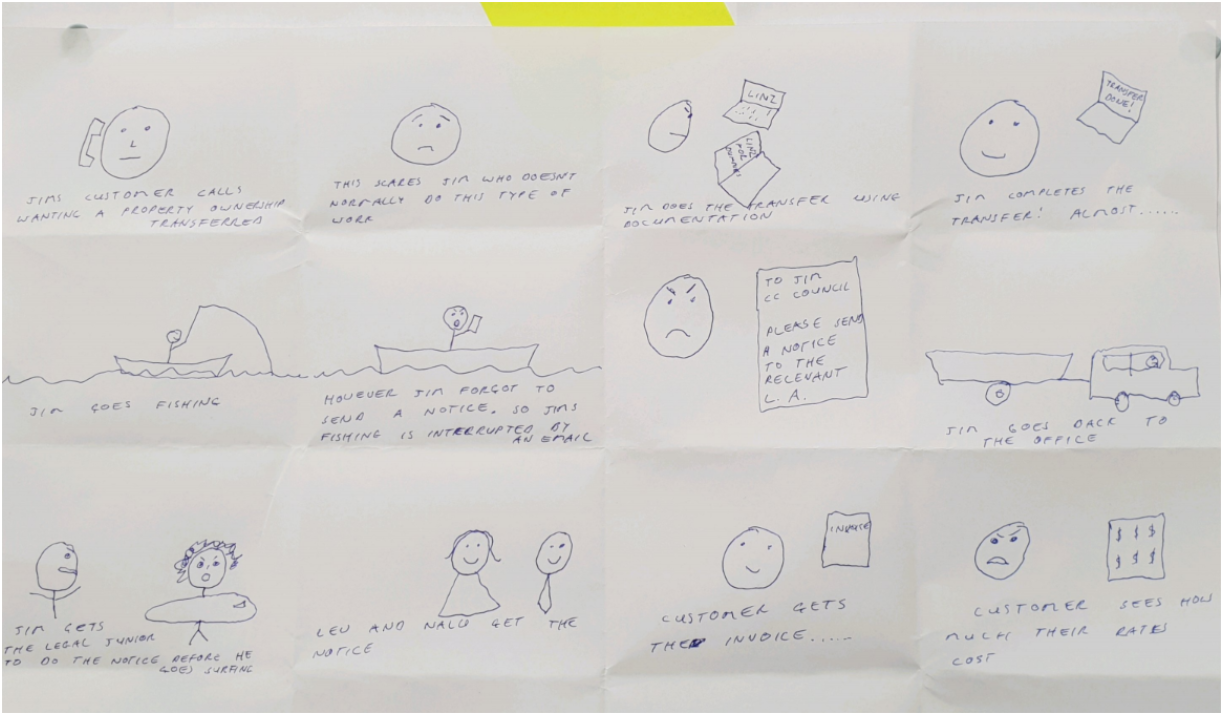 JIMS CUSTOMER CALLS
WANTING A PROPERTY OWNERSHIP
TRANSFERRED
THIS SCARES JIM WHO DOESNT
NORMALLY DO THIS TYPE OF
WORK
LINZ
LINZ
FOR
JIM DOES THE TRANSFER USING
DOCUMENTATION
TRANSFER
DONE!
JIM COMPLETES THE
TRANSFER! ALMOST.....
JIM GOES FISHING
HOWEVER JIM FORGOT TO
SEND A NOTICE. SO JIMS
FISHING IS INTERRUPTED BY
AN EMAIL
TO JIM
CC COUNCIL
PLEASE SEND
A NOTICE
TO THE
RELEVANT
L. A.
JIM GOES BACK TO
THE OFFICE
JIM GETS
THE LEGAL JUNIOR
TO DO THE NOTICE BEFORE HE
GOES SURFING
LEV AND NALU GET THE
NOTICE
INVOICE
CUSTOMER GETS
THE INVOICE.....
$ $ $
$ $ $
CUSTOMER SEES HOW
MUCH THEIR RATES
COST